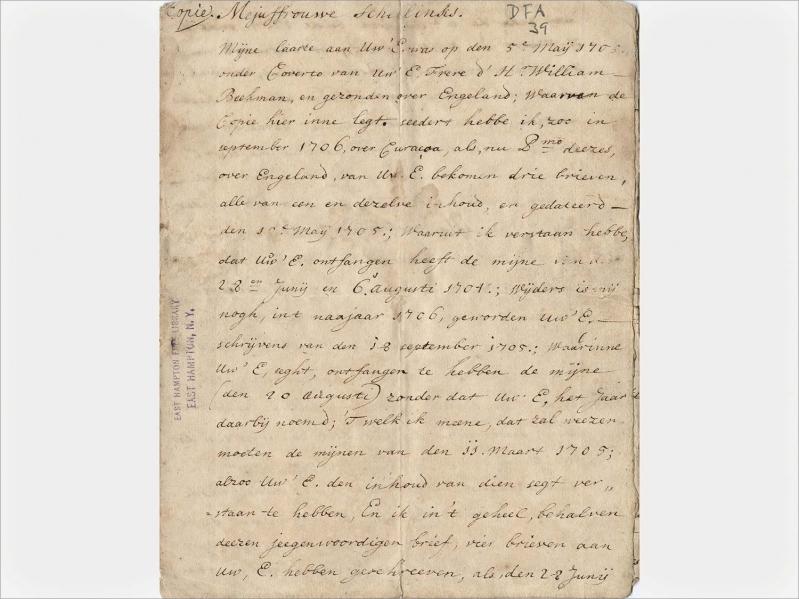 Copie. Mejuffrouwe Schellinks.
DFA
39
Mijne laaste aan Uw' E. was op den 5e Maÿ 1705.
onder Coverto van Uw' E. Frere d' Hr William
Beekman, en gezonden over Engeland; Waarvan de
Copie hier inne legt. seeders hebbe ik, zoo in
september 1706, over Curacoa, als, nu P mo deezes,
over Engeland, van Uw' E. bekomen drie brieven,
alle van een en dezelve inhoud, en gedateerd —
den Maÿ 1705.; Waaruit ik verstaan hebbe,
dat Uw' E. ontfangen heeft de mijne
28en Junÿ en 6. augusti 1704.; Wijders is mij
nogh, in't naajaar 1706, geworden Uw' E. —
schrijvens van den 18 september 1705.; Waarinne
Uw' E, seght, ontfangen te hebben de mijne
(den 20 augusti) zonder dat Uw' E, het Jaar
daarbij noemd; 'T welk ik meene, dat zal weezen
moeten de mijnen van den 11. Maart 1705;
alzoo Uw' E. den inhoud van dien segt ver„
„staan te hebben, En ik in't geheel, behalven
deezen jeegenwoordigen brief, vier brieven aan
Uw, E. hebben geschreeven, als, den 28 Junÿ
EAST HAMPTON FREE LIBRARY
EAST HAMPTON, N. Y.